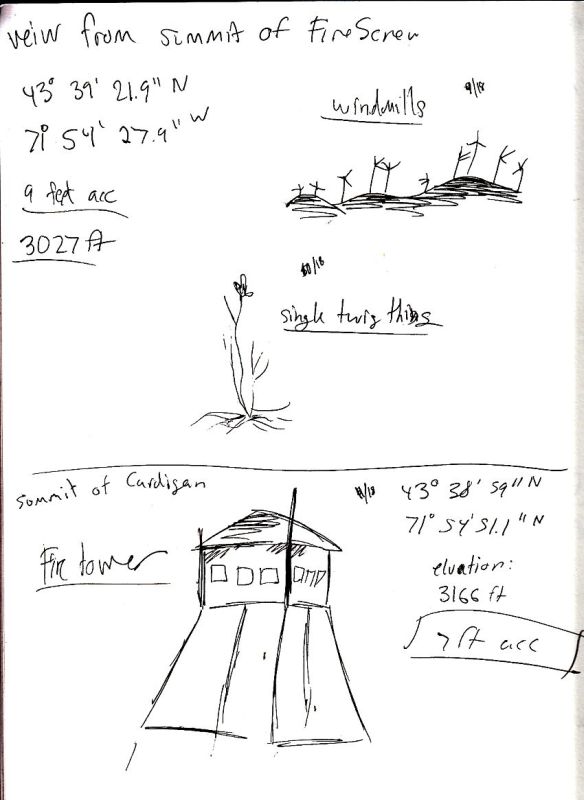 veiw from summit of FireScrew
43° 39' 21.9" N
71° 54' 27.9" W
9 feet acc
3027 ft
windmills
9/18
10/18
single twig things
summit of Cardigan
Fire tower
11/18
43° 38' 59" N
71° 54' 51.1" N
elvation:
3166 ft
7 ft acc